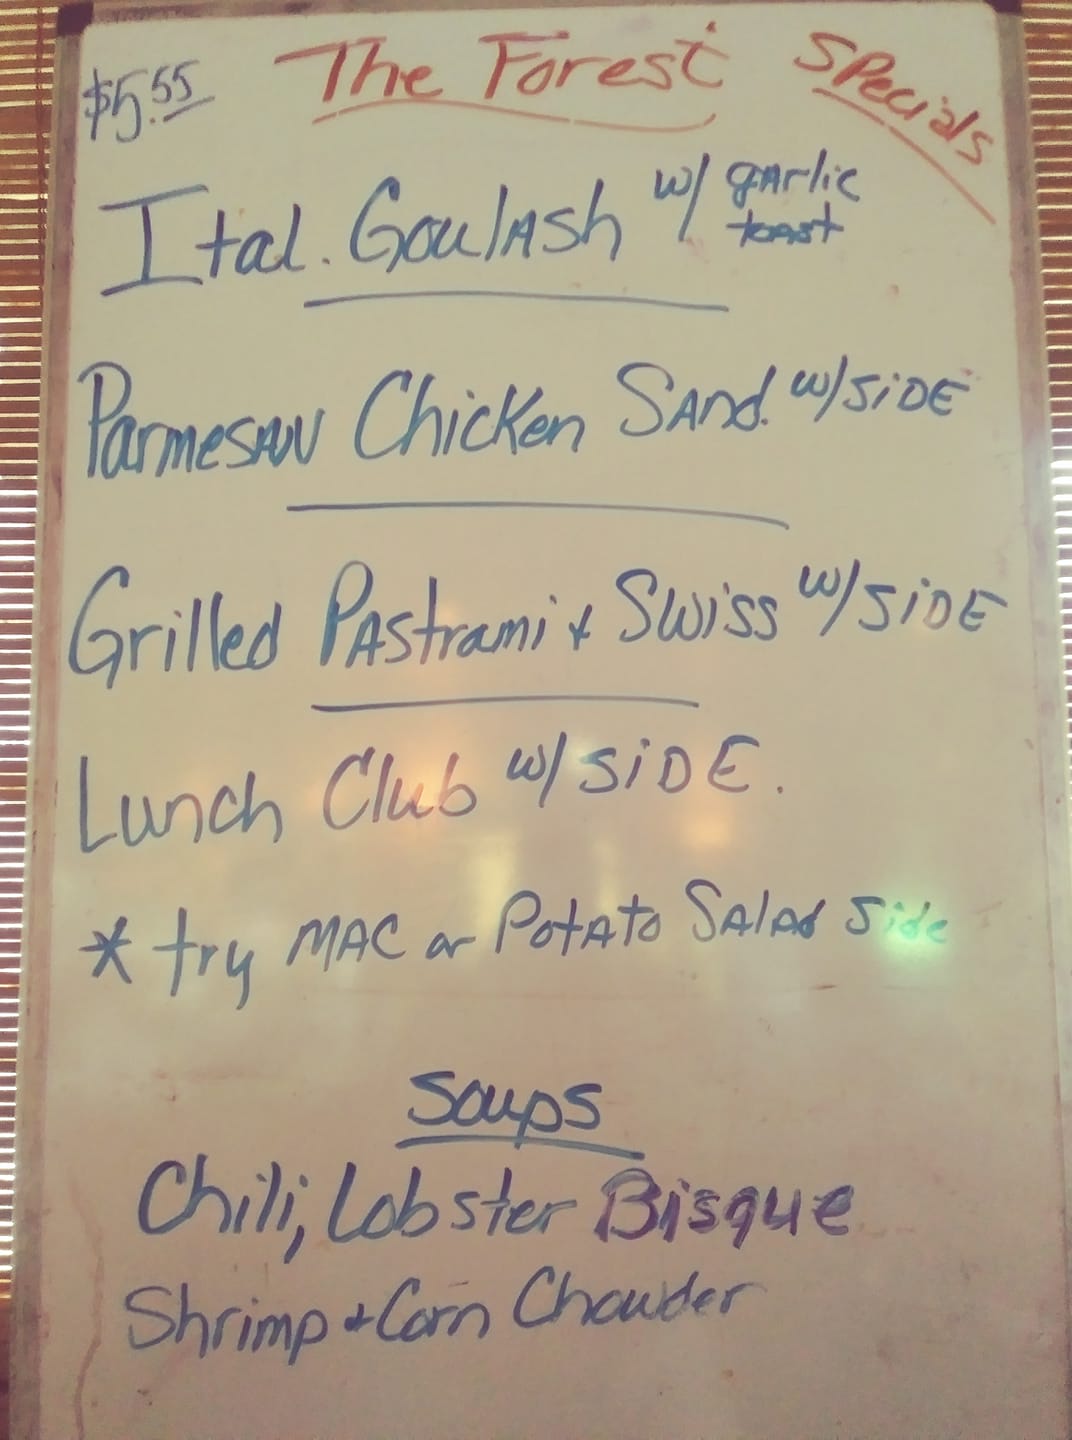 $5.55 The Forest Specials
Ital. Goulash w/ garlic toast
Parmesan Chicken Sand. w/ SiDE
Grilled Pastrami + Swiss w/ SiDE
Lunch Club w/ SiDE.
* try MAC or Potato Salad Side
Soups
Chili, Lobster Bisque
Shrimp + Corn Chowder